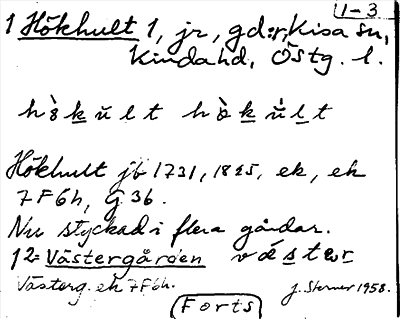 1-3
1 Hökhult 1, jr, gd:r, Kisa sn,
Kinda hd, Östg. l.
hò̀kŭlt hò̀kù̀lt
Hökhult jb 1731, 1825, ek, eh
7F6h, G 36.
Nu styckad i flera gårdar.
12= Västergården vástẹr
Västerg. eh 7F6h.
J. Sterner 1958.
Forts